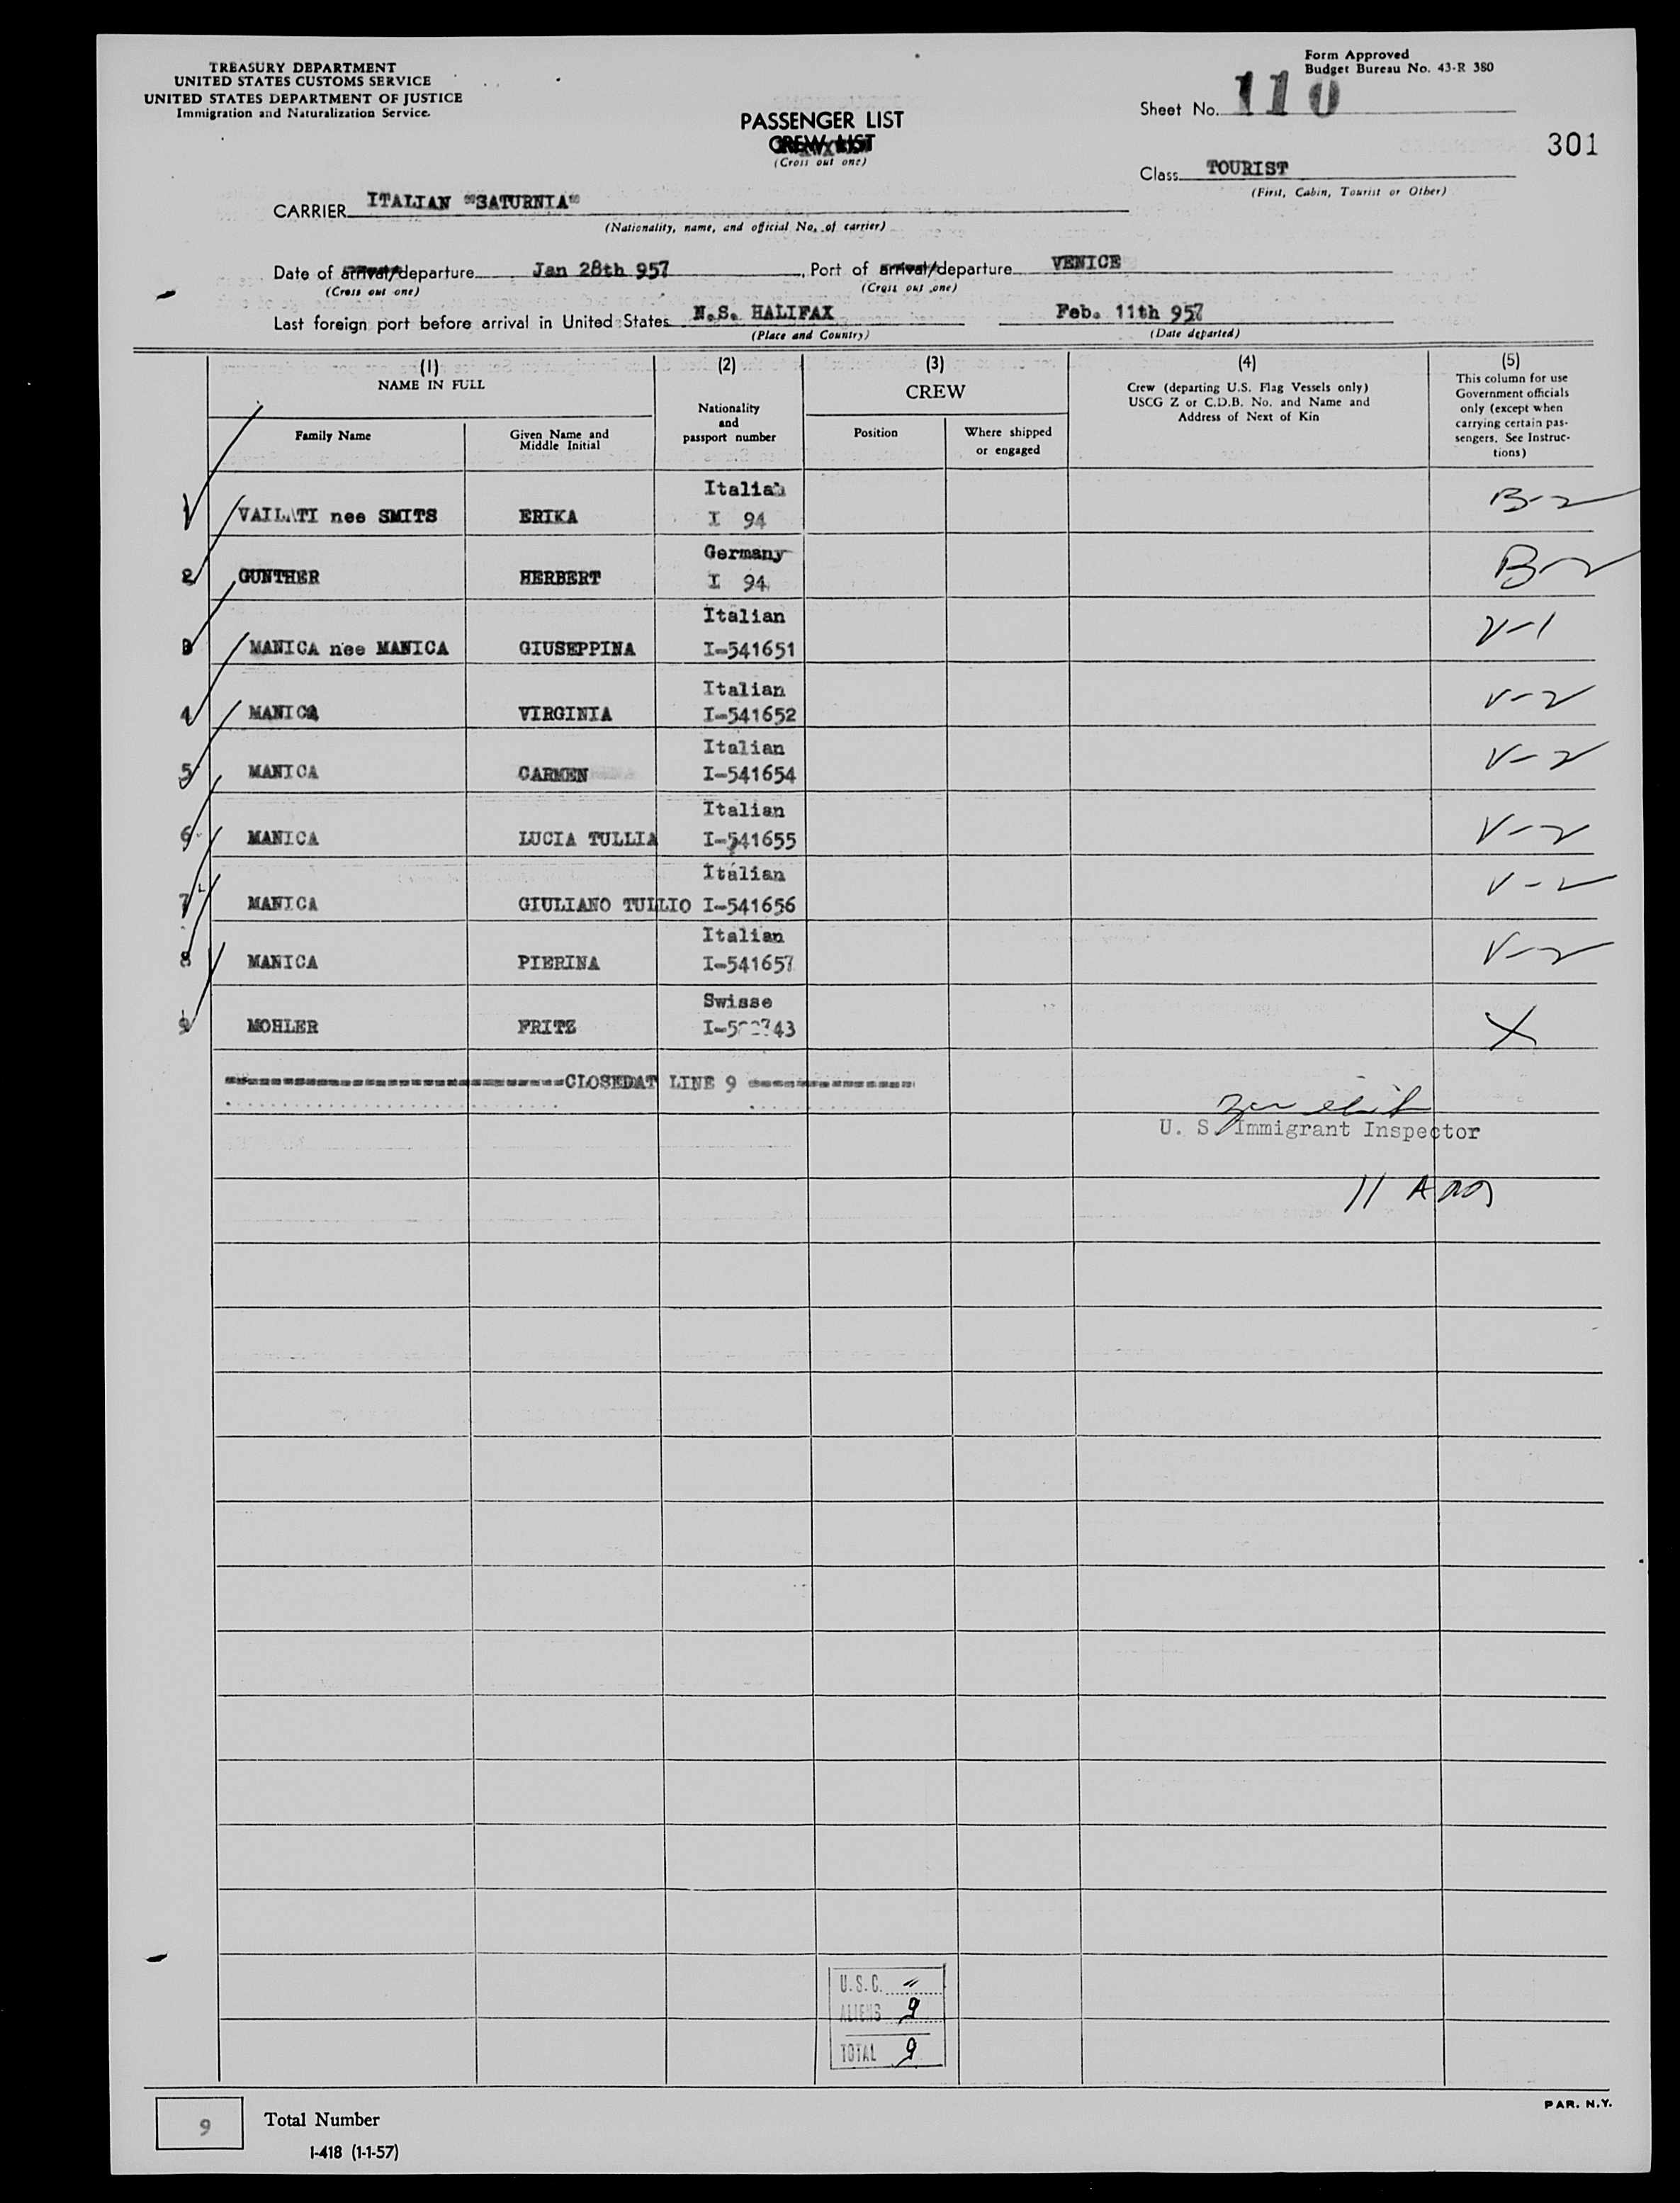 TREASURY DEPARTMENT
UNITED STATES CUSTOMS SERVICE
UNITED STATES DEPARTMENT OF JUSTICE
Immigration and Naturalization Service.
Form Approved
Budget Bureau No. 43-R 380
Sheet No. 110
301
PASSENGER LIST
CREW LIST
(Cross out one)
Class TOURIST
(First, Cabin, Tourist or Other)
CARRIER ITALIAN "SATURNIA"
(Nationality, name, and official No. of carrier)
Date of arrival/departure Jan 28th 957, Port of arrival/departure VENICE
(Cross out one) (Cross out one)
Last foreign port before arrival in United States N.S. HALIFAX Feb. 11th 957
(Place and Country) (Date departed)
(1) (2) (3) (4) (5)
NAME IN FULL
Family Name
Given Name and
Middle Initial
Nationality
and
passport number
CREW
Position
Where shipped
or engaged
Crew (departing U.S. Flag Vessels only)
USCG Z or C.D.B. No. and Name and
Address of Next of Kin
This column for use
Government officials
only (except when
carrying certain pas-
sengers. See Instruc-
tions)
Italian
1 VAILATI nee SMITS ERIKA I 94 B-2
Germany
2 GUNTHER HERBERT I 94 B-2
Italian
3 MANICA nee MANICA GIUSEPPINA I-541651 V-1
Italian
4 MANICA VIRGINIA I-541652 V-2
Italian
5 MANICA CARMEN I-541654 V-2
Italian
6 MANICA LUCIA TULLIA I-541655 V-2
Italian
7 MANICA GIULIANO TULLIO I-541656 V-2
Italian
8 MANICA PIERINA I-541657 V-2
Swisse
9 MOHLER FRITZ X
CLOSEDAT LINE 9
U. S. Immigrant Inspector
U.S.C. "
ALIENS 9
TOTAL 9
9 Total Number
I-418 (1-1-57)
PAR. N.Y.